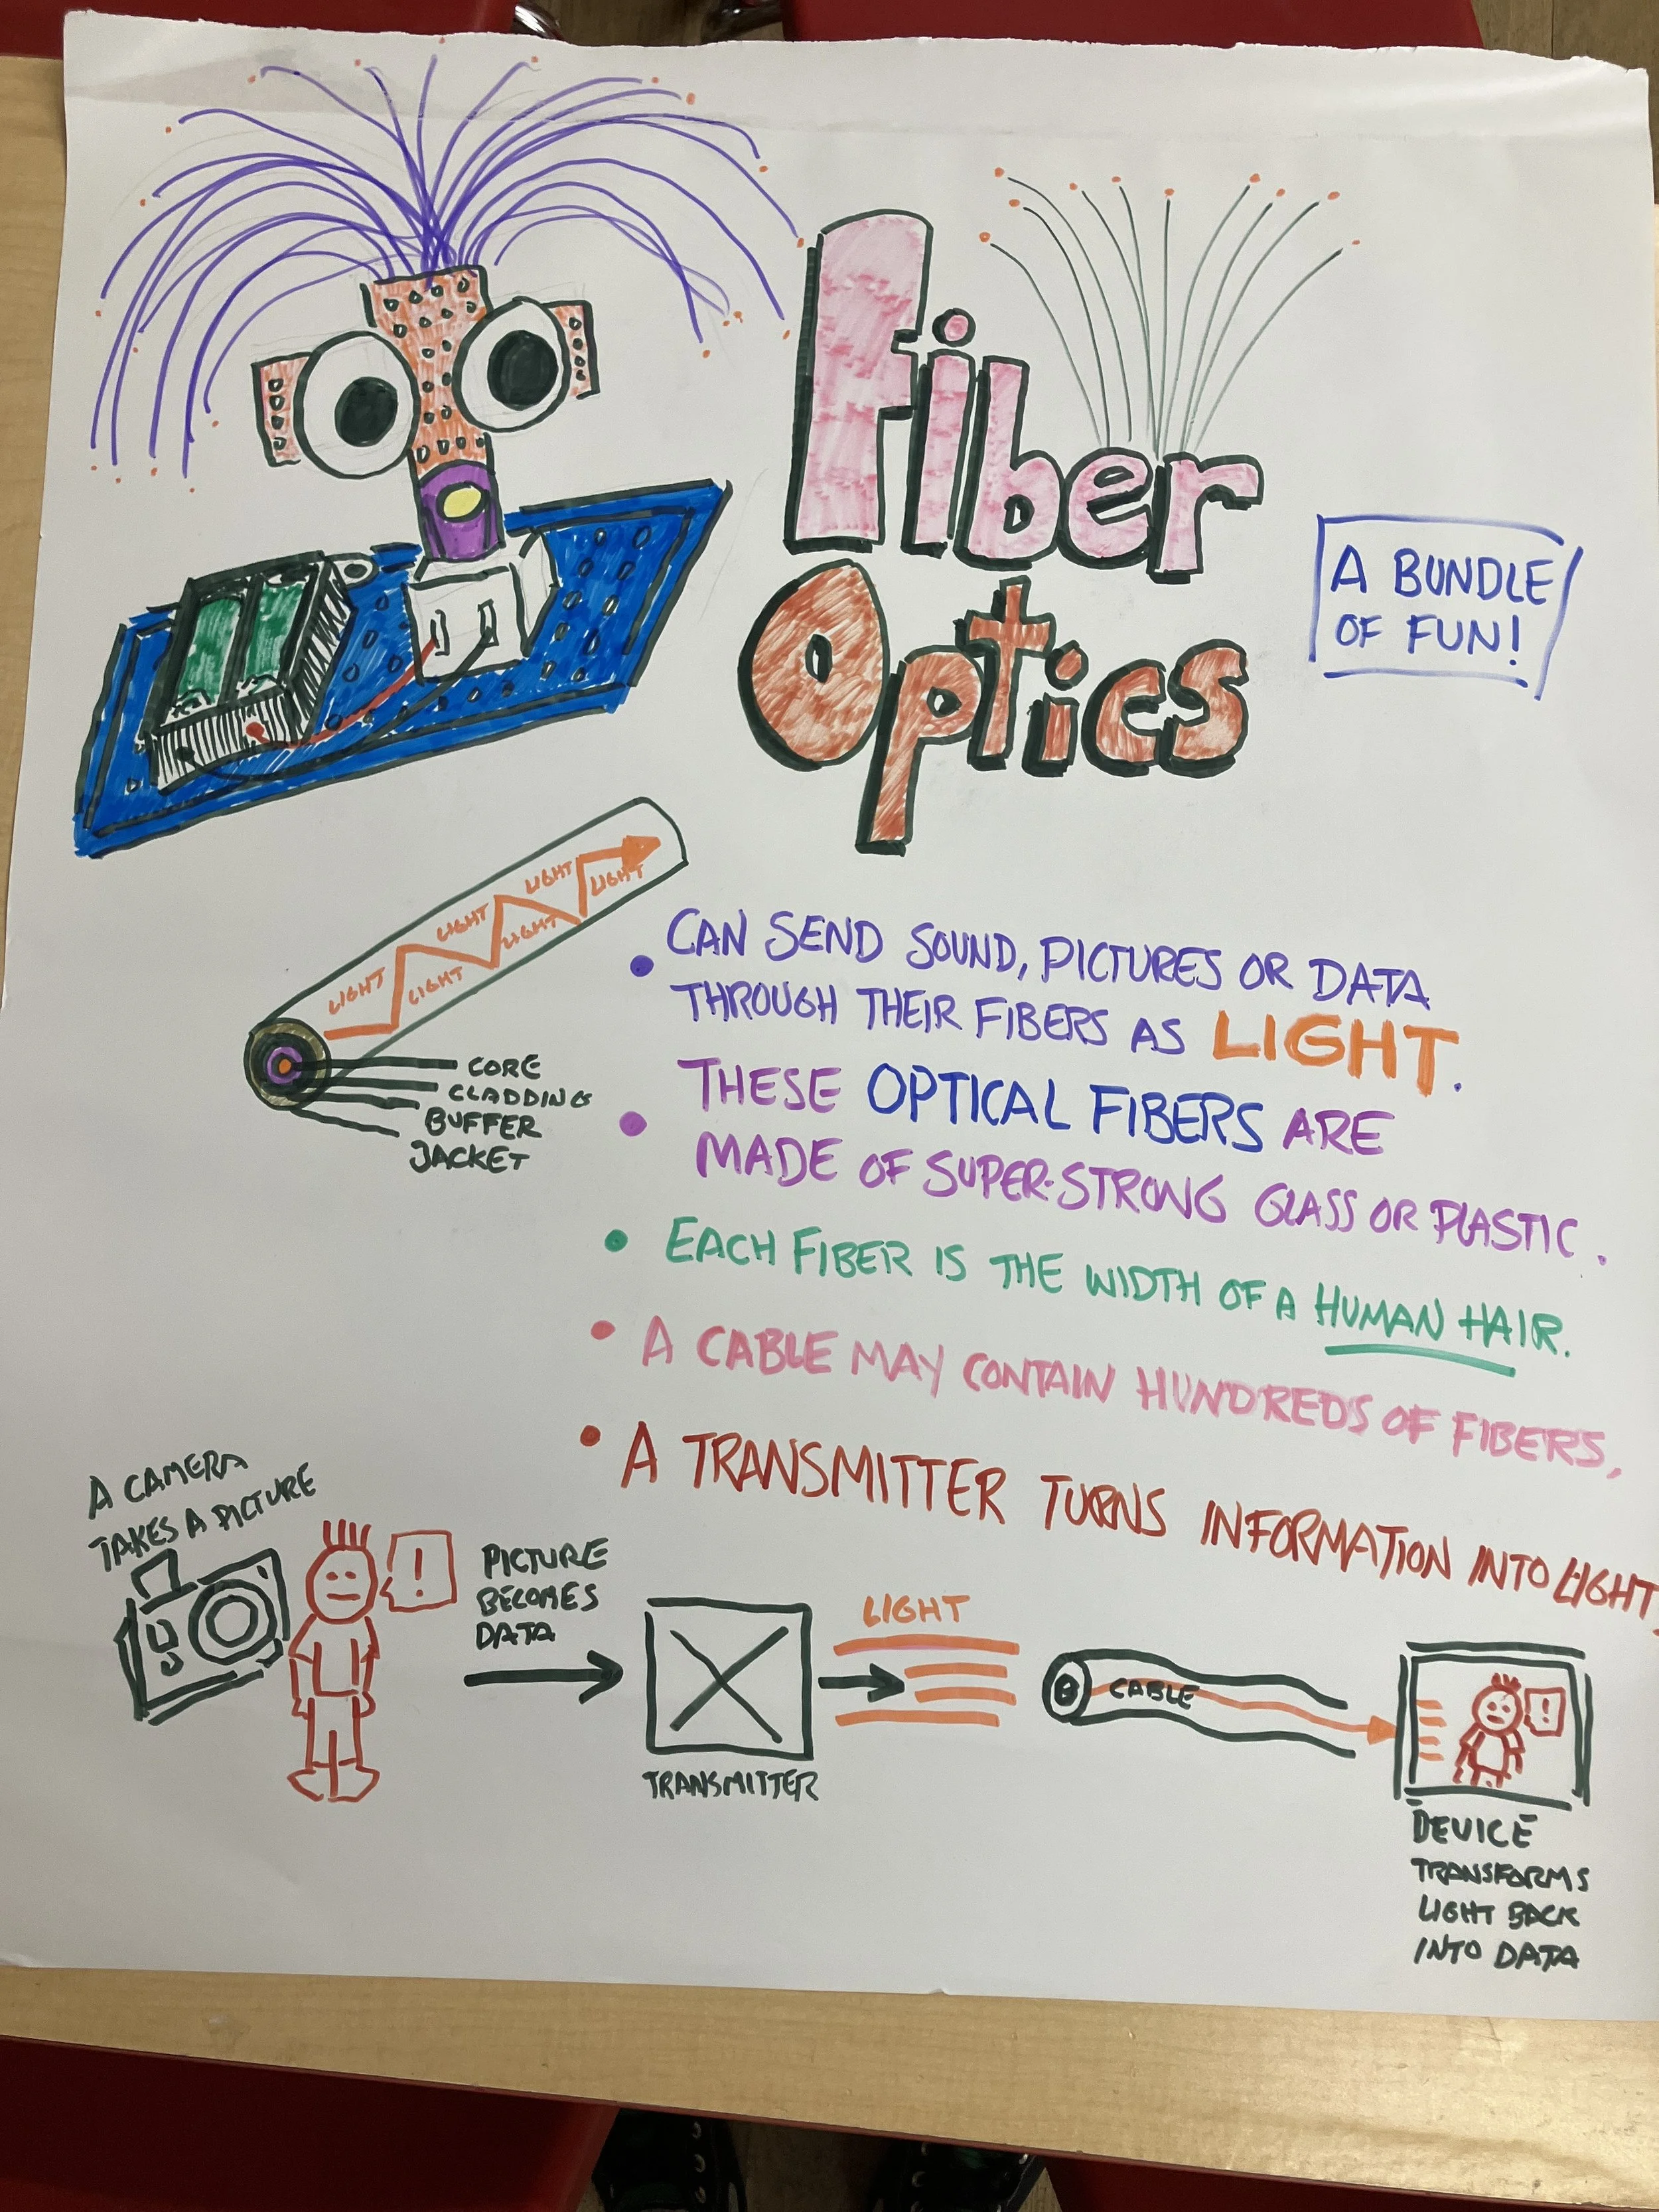 Fiber
Optics
A BUNDLE
OF FUN!
LIGHT
LIGHT
LIGHT
LIGHT
LIGHT
LIGHT
CORE
CLADDING
BUFFER
JACKET
• CAN SEND SOUND, PICTURES OR DATA
THROUGH THEIR FIBERS AS LIGHT.
• THESE OPTICAL FIBERS ARE
MADE OF SUPER-STRONG GLASS OR PLASTIC.
• EACH FIBER IS THE WIDTH OF A HUMAN HAIR.
• A CABLE MAY CONTAIN HUNDREDS OF FIBERS,
• A TRANSMITTER TURNS INFORMATION INTO LIGHT,
A CAMERA
TAKES A PICTURE
!
PICTURE
BECOMES
DATA
TRANSMITTER
LIGHT
CABLE
!
DEVICE
TRANSFORMS
LIGHT BACK
INTO DATA